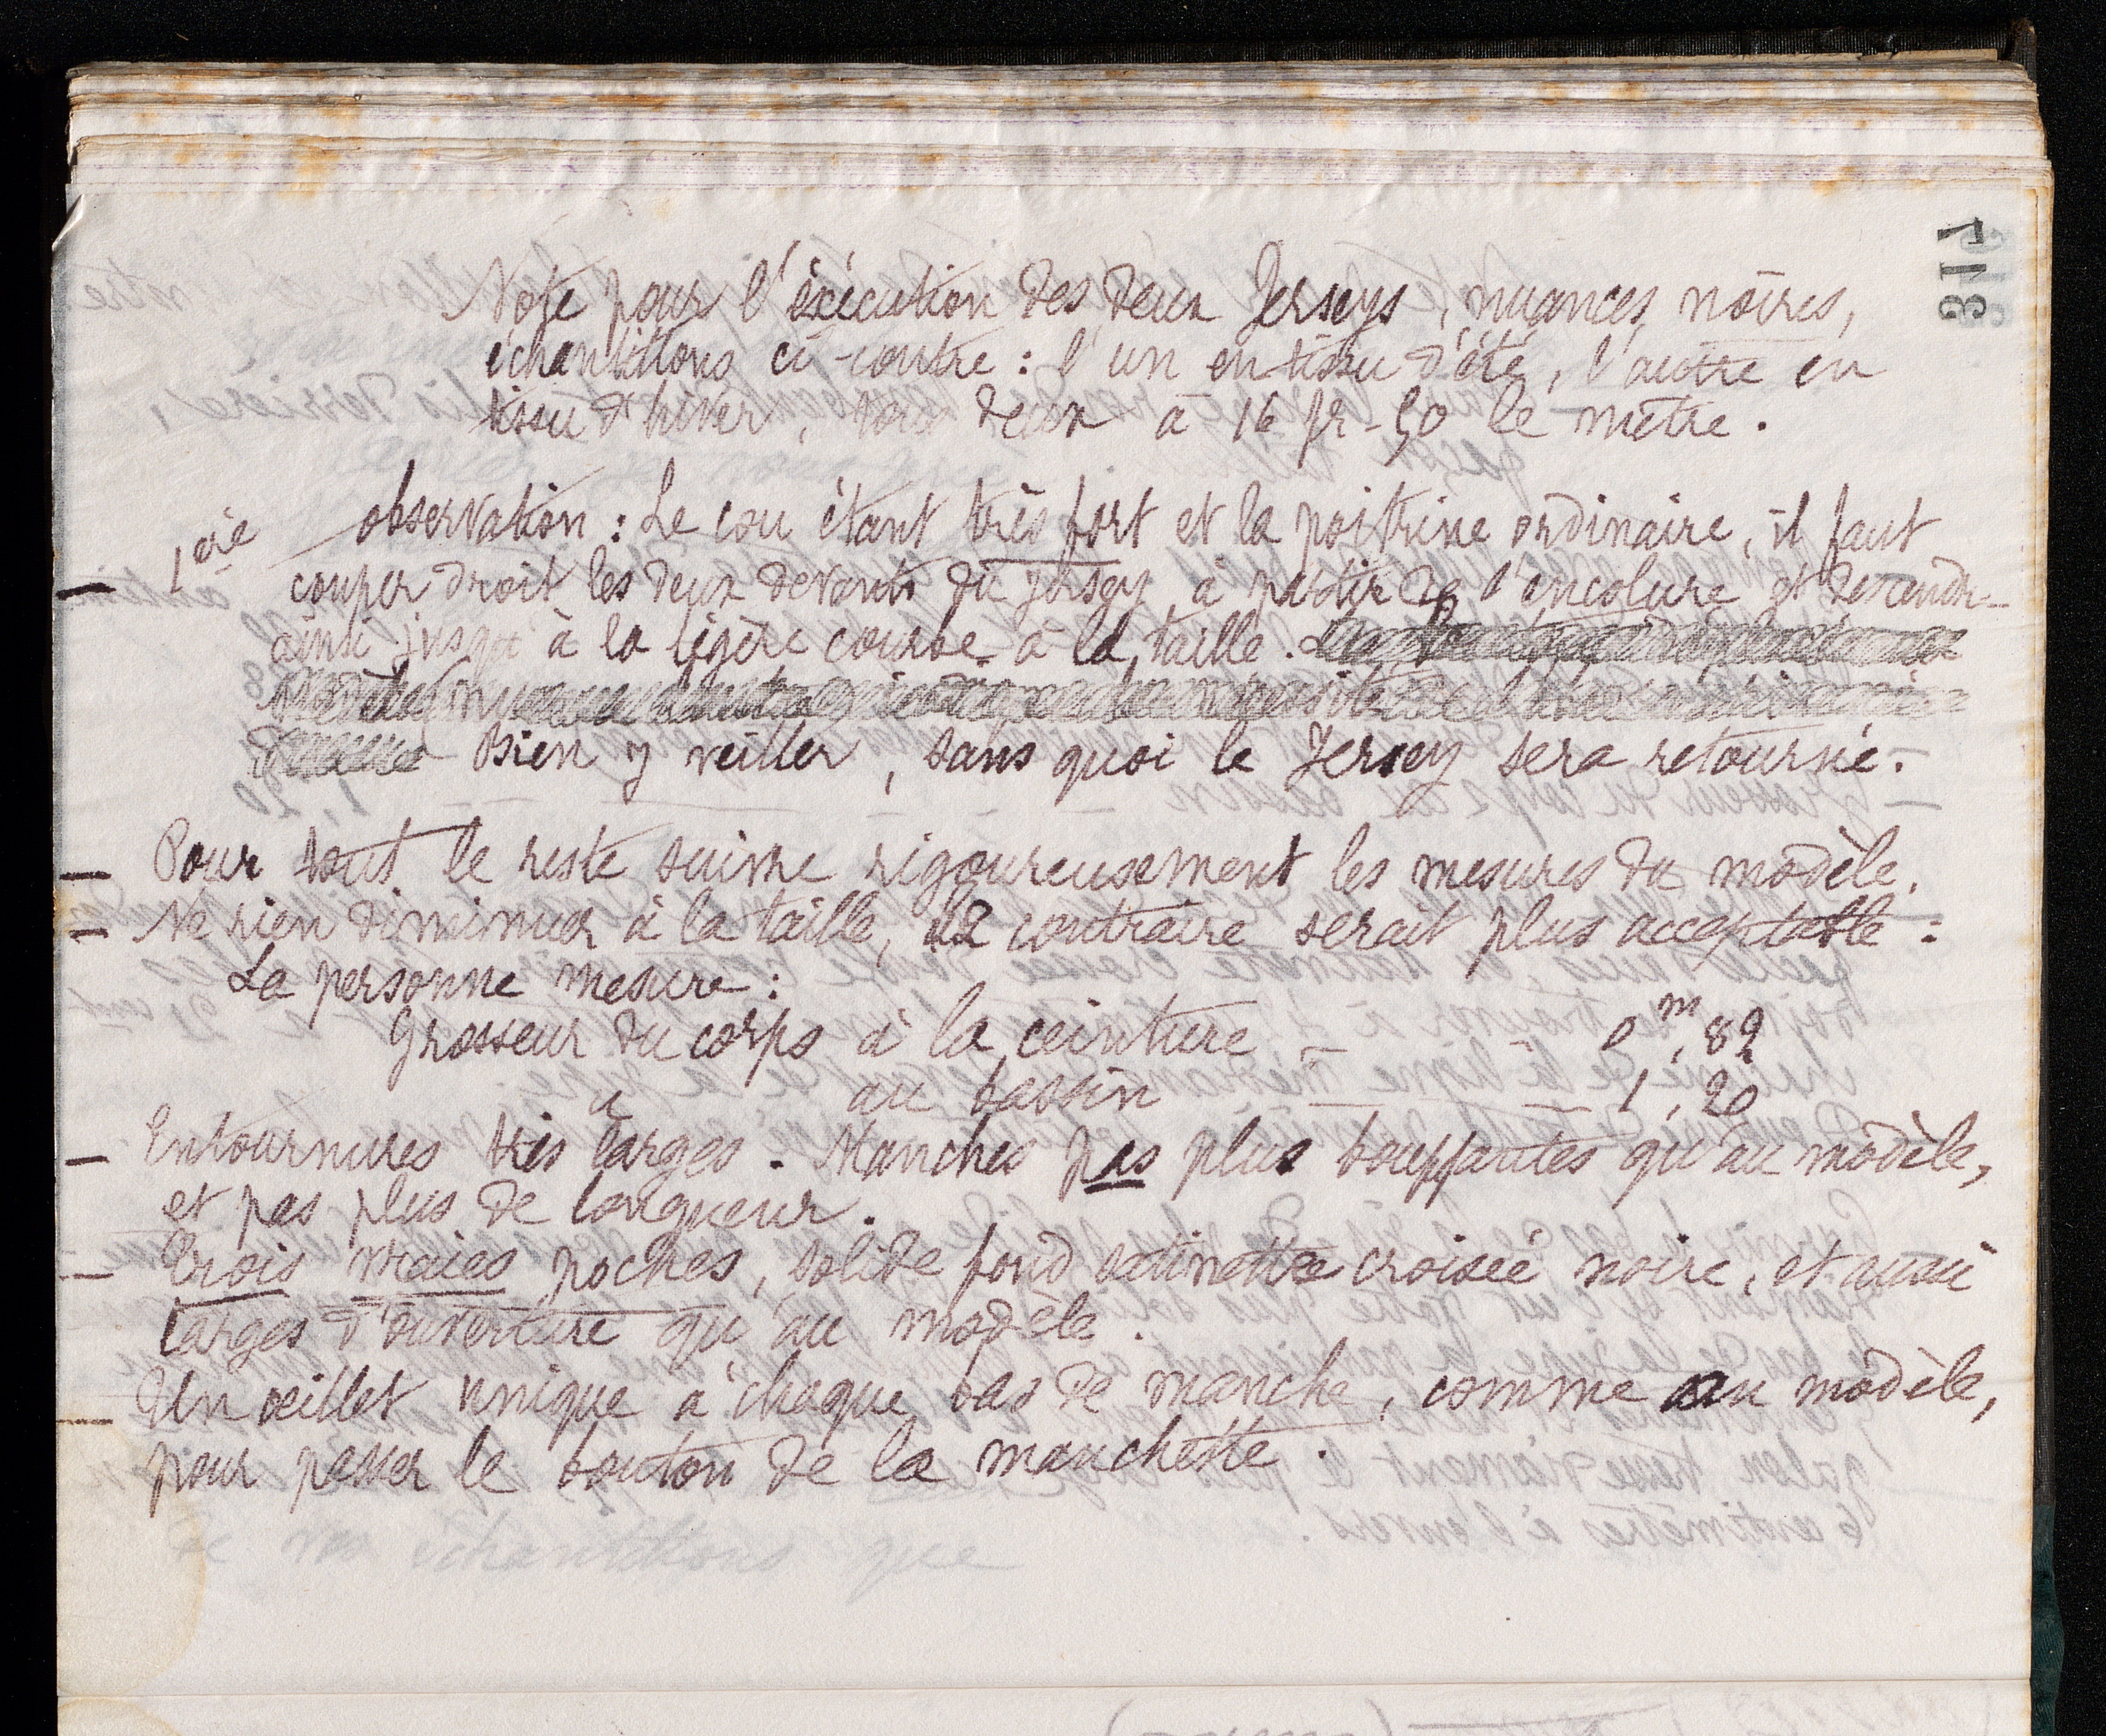 317
Note pour l'éxécution des deux Jerseys, nuances noires,
échantillons ci-contre : l'un en tissu d'été, l'autre en
tissu d'hiver, tous deux à 16 fr-50 le mètre.
1ère observation : Le cou étant très fort et la poitrine ordinaire, il faut
couper droit les deux devants du Jersey à partir de l'encolure et descendr-
ainsi jusqu'à la légère courbe à la taille.
Bien y veiller, sans quoi le Jersey sera retourné.
— Pour tout le reste suivre rigoureusement les mesures du modèle.
— Ne rien diminuer à la taille, le contraire serait plus acceptable :
La personne mesure :
Grosseur du corps à la ceinture — — 0m,82
" au bassin — — 1,20
— Entournures très larges. Manches pas plus bouffantes qu'au modèle,
et pas plus de longueur.
— Trois vraies poches, solide fond satinette croisée noire, et aussi
larges d'ouverture qu'au modèle.
— Un œillet unique à chaque bas de manche, comme au modèle,
pour passer le bouton de la manchette.
de vos échantillons que